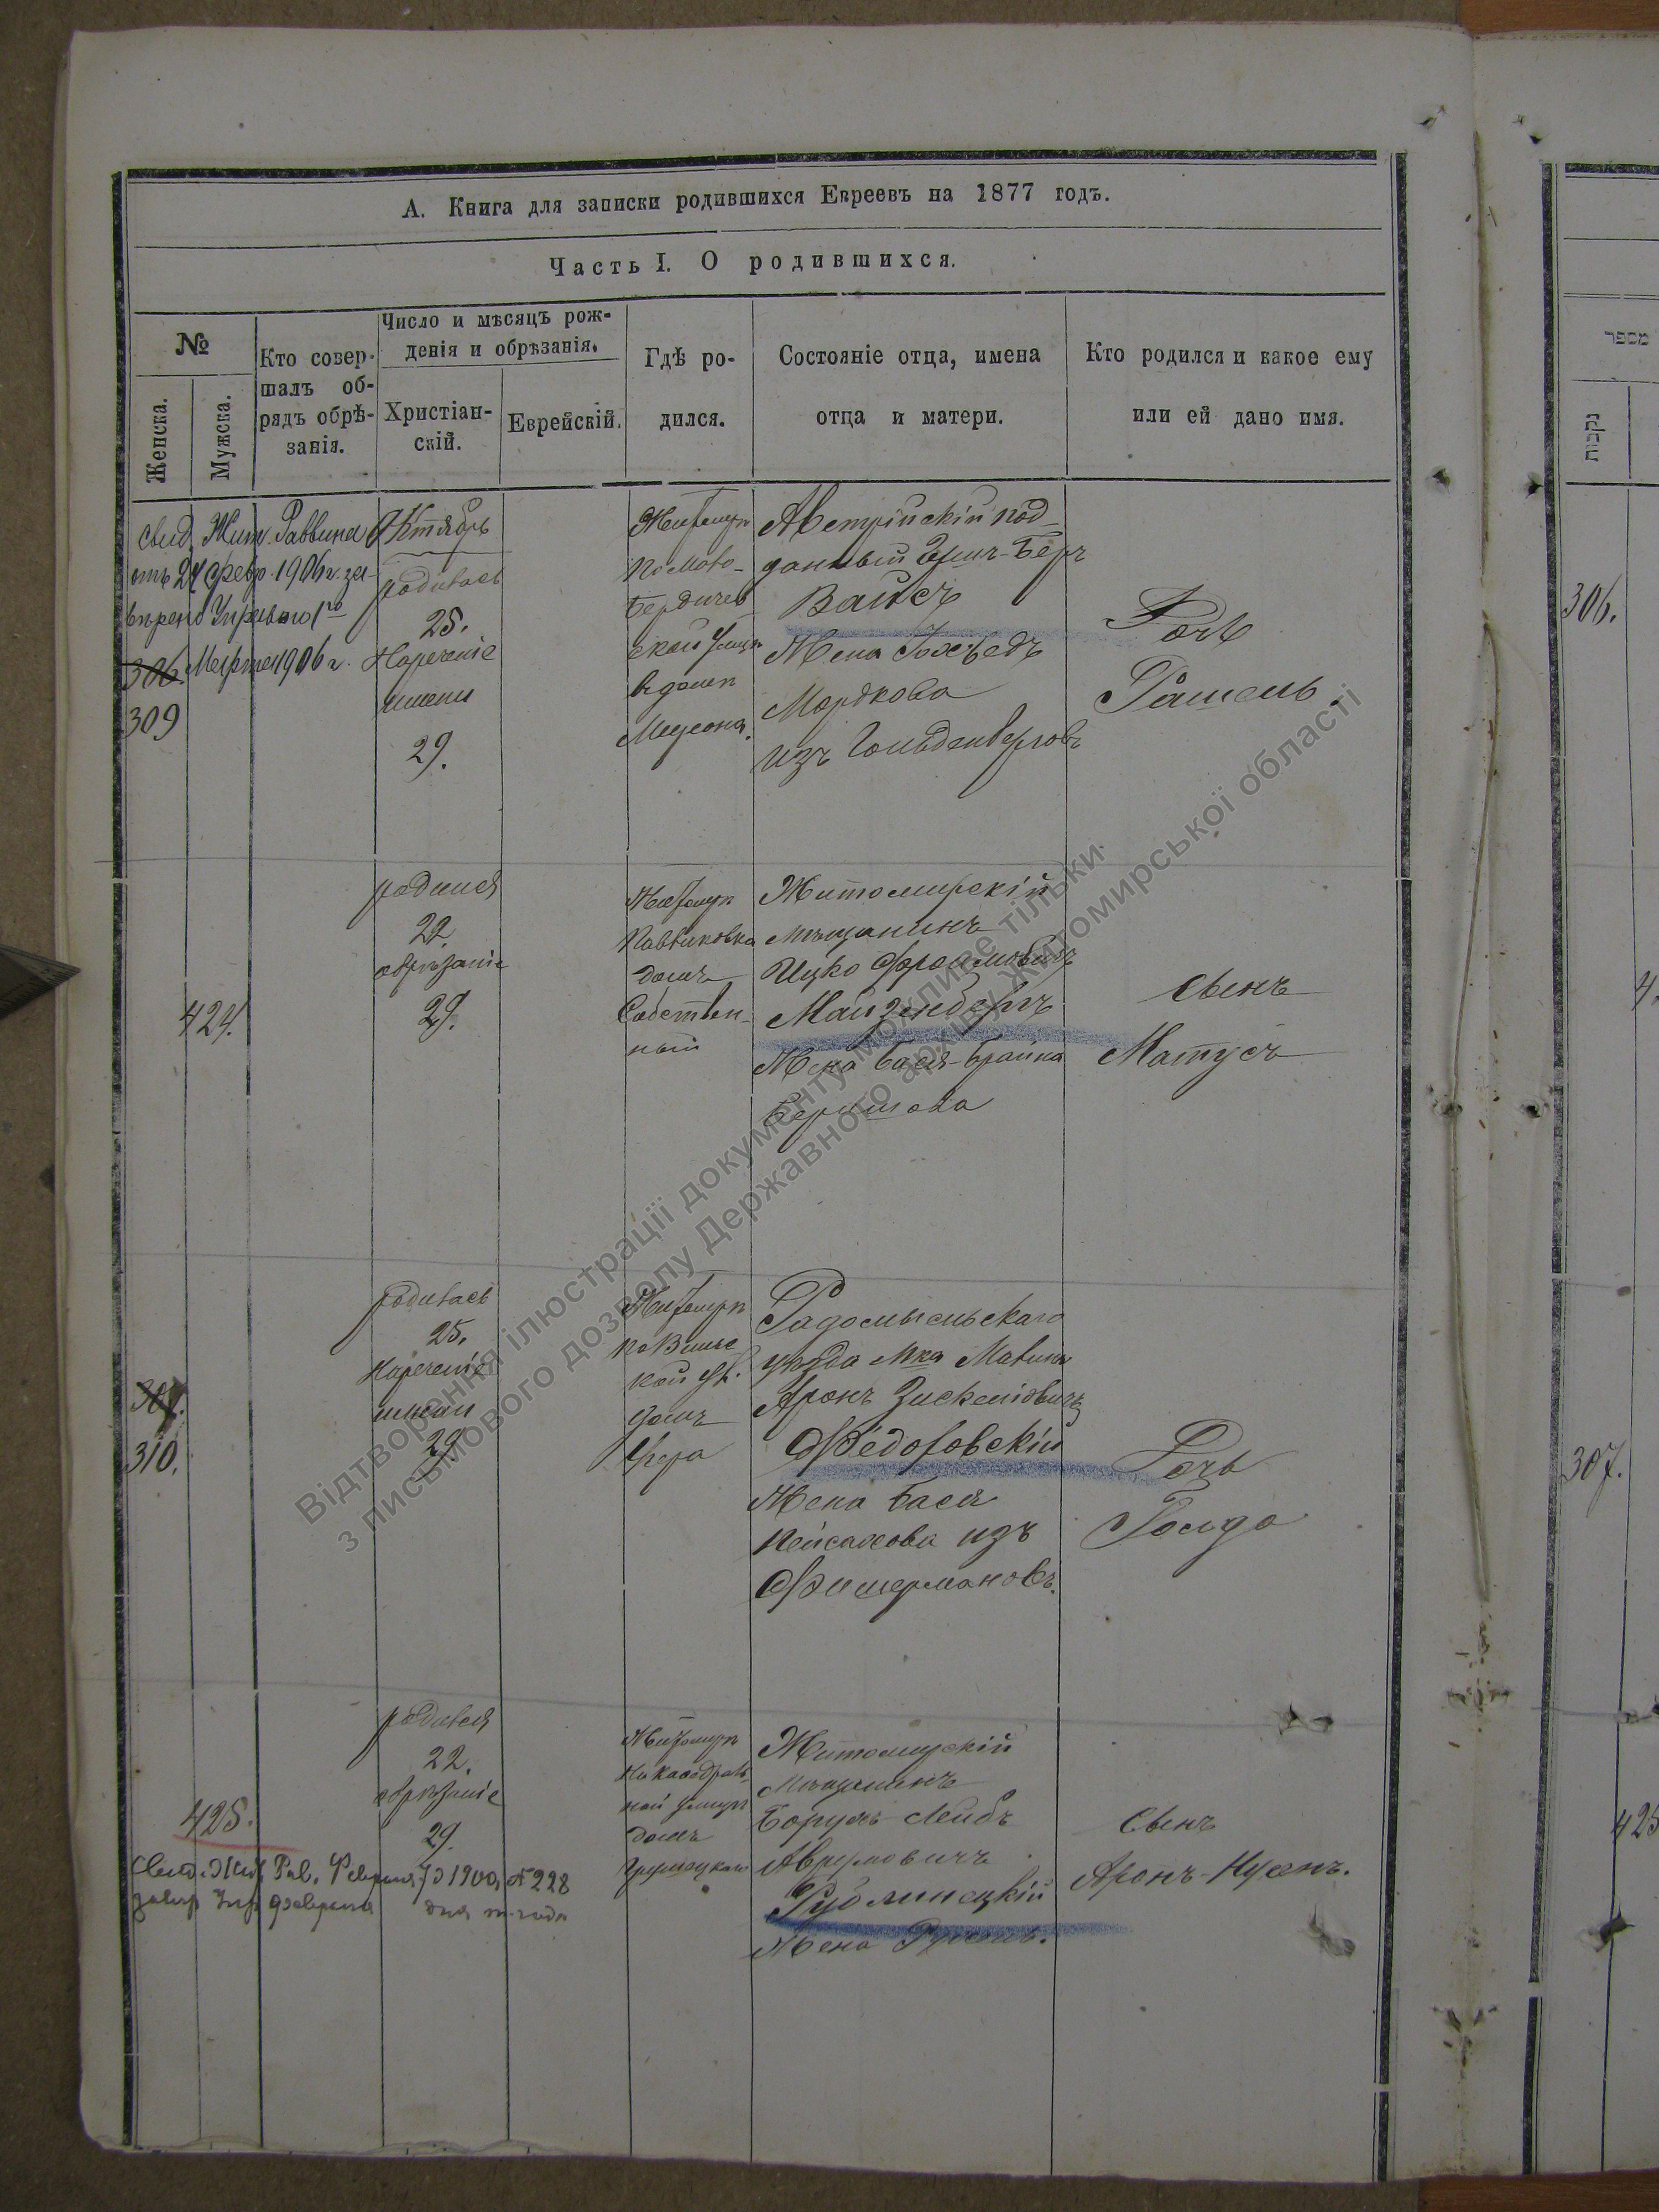 А. Книга для записки родившихся Евреевъ на 1877 годъ.
Часть I. О родившихся.
№
Женска.
Мужска.
Кто совер-
шалъ об-
рядъ обрѣ-
занія.
Число и мѣсяцъ рож-
денія и обрѣзанія.
Христіан-
скій.
Еврейскій.
Гдѣ ро-
дился.
Состояніе отца, имена
отца и матери.
Кто родился и какое ему
или ей дано имя.
свид. Жит. Раввина
отъ 24 февр. 1906 г. за-
306. Марта 1906 г.
309
Октябрь
родилась
25.
Нареченіе
имени
29.
Житомир
Бердичев
ской улицѣ
въ домѣ
Австрійскій под-
данный
Вайсъ
Жена Іохведъ
Мордкова
изъ Гольденберговъ
Дочь
Рашель.
424.
родился
22.
обрѣзаніе
29.
Житомир
Павликовка
домъ
Собствен-
ный
Житомирскій
мѣщанинъ
Ицко Фроимовичъ
Майзенбергъ
Жена Бася-Брайна
Беришова
сынъ
Матусъ
307.
310.
родилась
25.
Нареченіе
имени
29
Житомир
домъ
Радомысльскаго
уѣзда мка Малина
Аронъ Зискелiовичъ
Ѳедоровскій
Жена Бася
Пейсахова изъ
Фишермановъ.
Дочь
Голда
425.
родился
22.
обрѣзаніе
29.
Житомир
на Каѳедраль-
ной улицѣ
домъ
Житомирскій
Мѣщанинъ
Борухъ-Лейбъ
Аврумовичъ
Рудминецкій
Жена
Сынъ
Аронъ-Нусенъ.
Свид. Жит. Рав. 1900 № 228
февраля дня т. года
מספר
נקבות
306.
4
307.
425
Відтворення ілюстрації документу можливе тільки
з письмового дозволу Державного архіву Житомирської області